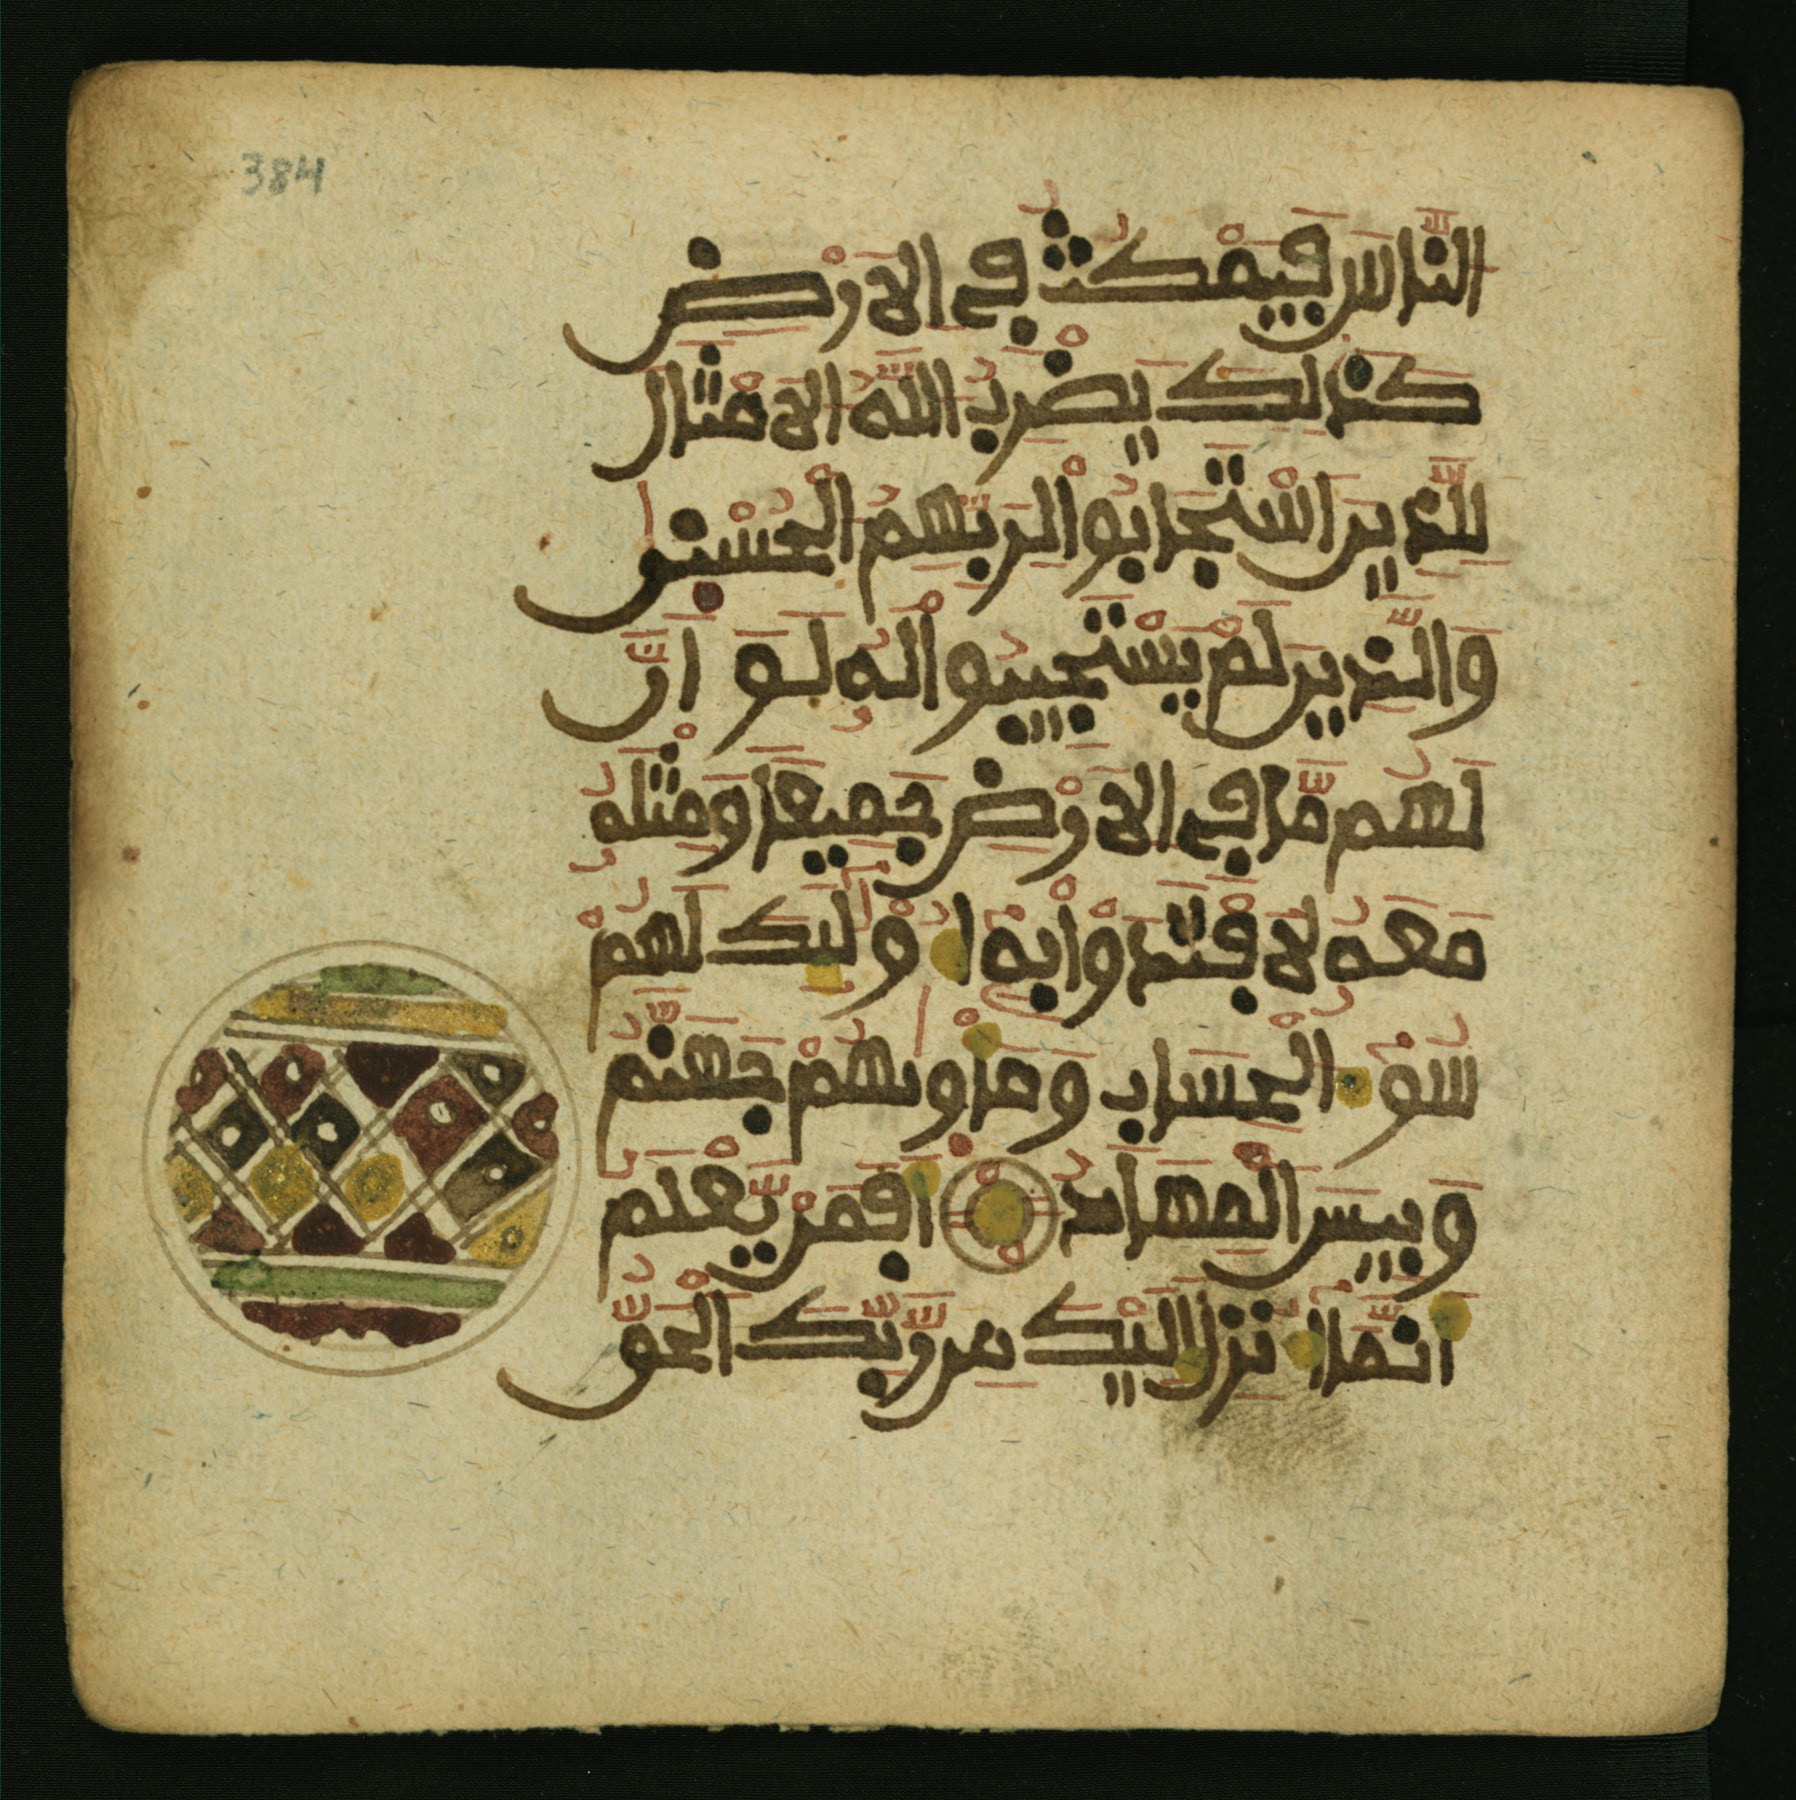 384
النَّاسَ فَيَمْكُثُ فِي الَارْضِ
كَذَلِكَ يَضْرِبُ اللَّهُ الَامْثَالَ
لِلَّذِينَ اسْتَجَابُواْ لِرَبِّهِمُ الْحُسْنَى
وَالَّذِينَ لَمْ يَسْتَجِيبُواْ لَهُ لَوَ انَّ
لَهُم مَّا فِي الَارْضِ جَمِيعًا وَمِثْلَهُ
مَعَهُ لَافْتَدَوْا بِهِ أُوْلَئِكَ لَهُمْ
سُوءُ الْحِسَابِ وَمَأْوَىهُمْ جَهَنَّمُ
وَبِيسَ الْمِهَادُ أَفَمَنْ يَّعْلَمُ
أَنَّمَا أُنزِلَ إِلَيْكَ مِن رَّبِّكَ الْحَقُّ